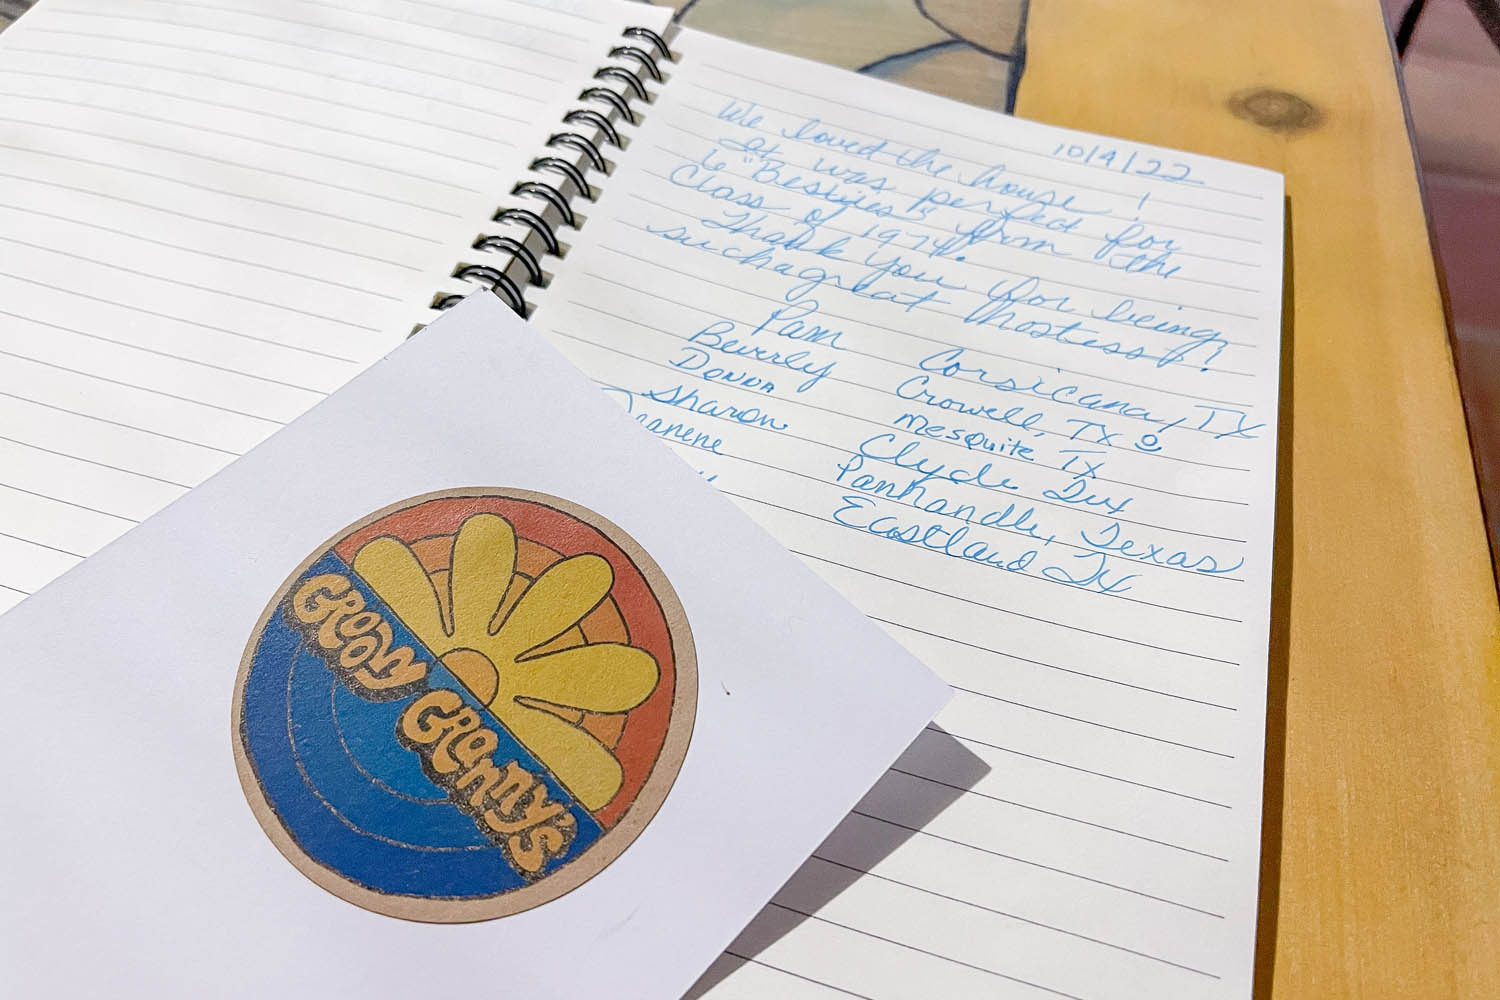 10/4/22
We loved the house!
It was perfect for
6 "Besties" from the
Class of 1974.
Thank you for being
such a great hostess!
Pam Corsicana, TX
Beverly Crowell, TX
Donna Mesquite TX
Sharon Clyde Tex
Jeanene Panhandle, Texas
Eastland Tx
GROOVY GRANNY'S